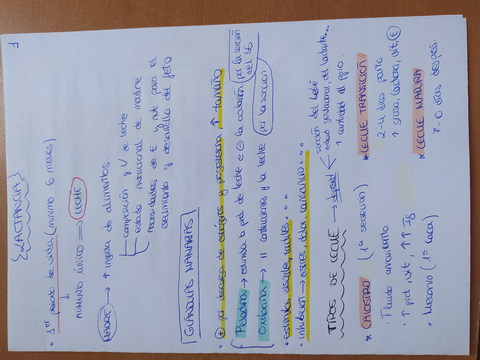 1
LACTANCIA
• 1er periodo de vida (mínimo 6 meses)
ALIMENTO ÚNICO → LECHE
MADRE → ↑ ingesta de alimentos.
composición y V de leche
estado nutricional de madre
necesidades de E y nutr para el
crecimiento y desarrollo del feto
GLÁNDULAS MAMARIAS
descarga de estrógenos y progesterona, ↑ tamaño
Prolactina → estimula la prod de leche e ⊖ la ovulación por la succión
del bb
Oxitocina → contracciones y la leche por la succión
• Estímulos: visuales, táctiles...
• Inhibición → estrés, dolor, cansancio...
TIPOS DE LECHE → depende
succión del bebé
estado nutricional del lactante...
↑ cantidad al ppio.
* CALOSTRO (1ª secreción)
• Fluido amarillento
• ↑ prot, vit, ↑↑ Ig
• Meconio (1ª caca)
* LECHE TRANSICIÓN
2-4 días parto
↑ grasa, lactosa, vit, E
* LECHE MADURA
7-10 días despés.